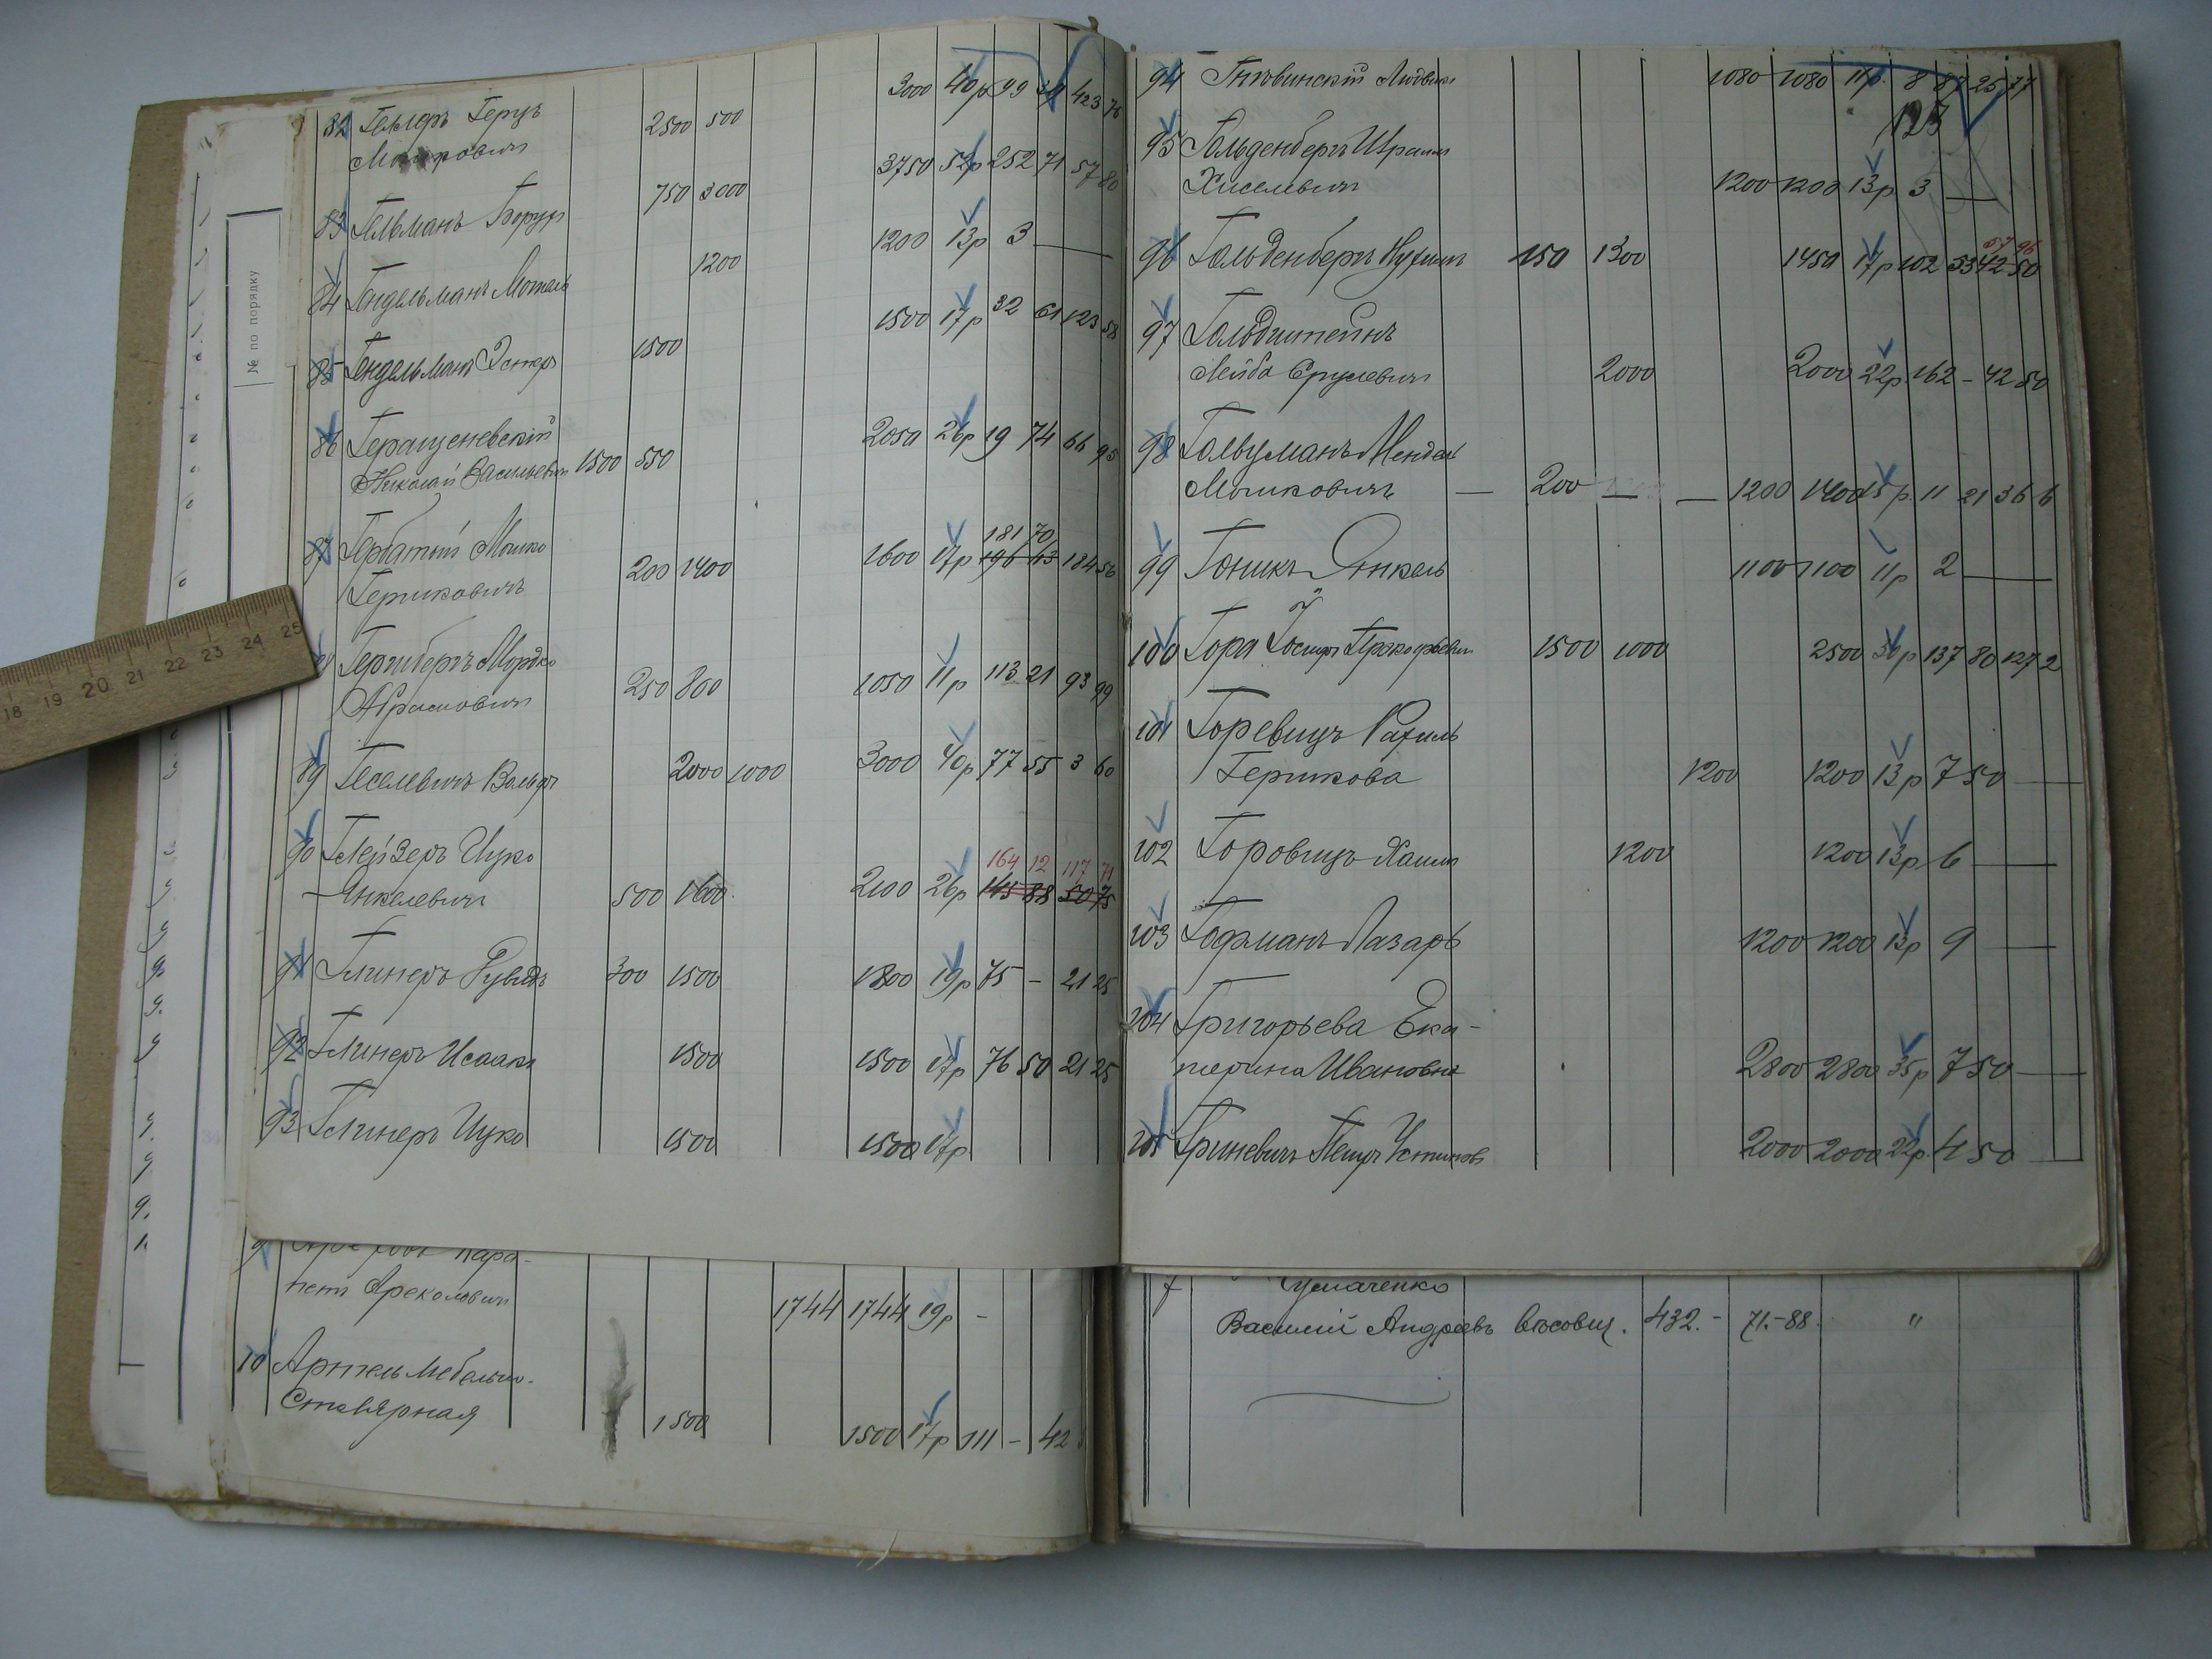 82 Геллеръ Герцъ 2500 500 3000 40р 99 423 76
83 Гельманъ Борухъ 750 3000 3750 52р 252 71 57 80
84 Гендельманъ Мотель 1200 1200 13р 3 —
85 Гендельманъ Эстеръ 1500 1500 17р 32 61 123 58
86 Геращеневскій
Николай Васильевичъ 1500 550 2050 26р 19 74 66 95
181 70
87 Гербатый Мошко 200 1400 1600 17р 196 43 134 56
Гершковичъ
Гершбергъ Мордко
Абрамовичъ 250 800 1050 11р 113 21 93 99
89 Геселевичъ Вольфъ 2000 1000 3000 40р 77 55 3 60
90 Глейзеръ Ицко 164 12 117 71
Янкелевичъ 500 1600 2100 26р 145 88 50 75
91 Глинеръ Рувидъ 300 1500 1800 19р 75 - 21 25
92 Глинеръ Исаакъ 1500 1500 17р 76 50 21 25
93 Глинеръ Ицко 1500 1500 17р
петъ 1744 1744 19р -
10 Артель Мебельно-
Столярная 1500 1500 17р 111 - 42
№ по порядку
18 19 20 21 22 23 24 25
94 Гнѣвинскій Людвигъ 1080 1080 11р. 8 87 25 77
125
95 Гольденбергъ Израиль
Хиселевичъ 1200 1200 13р 3 —
57 96
96 Гольденбергъ Нухимъ 150 1300 1450 17р 102 55 42 50
97 Гольдштейнъ
Лейба Срулевичъ 2000 2000 22р 162 - 42 50
98 Гольцманъ Мендель
Мошковичъ — 200 — — 1200 1400 15р 11 21 36 6
99 Гоникъ Янкель 1100 1100 11р 2 —
100 Гора Іосифъ Прокофьевичъ 1500 1000 2500 30р 137 80 127 2
101 Горевицъ Рахиль
Гершкова 1200 1200 13р 7 50 —
102 Горовицъ Хаимъ 1200 1200 13р 6 —
103 Гофманъ Лазарь 1200 1200 13р 9 —
104 Григорьева Ека-
терина Ивановна 2800 2800 35р 7 50 —
105 Гриневичъ Петръ Устиновъ 2000 2000 22р. 4 50 —
Василій Андреевъ 432.- 71.-88 "